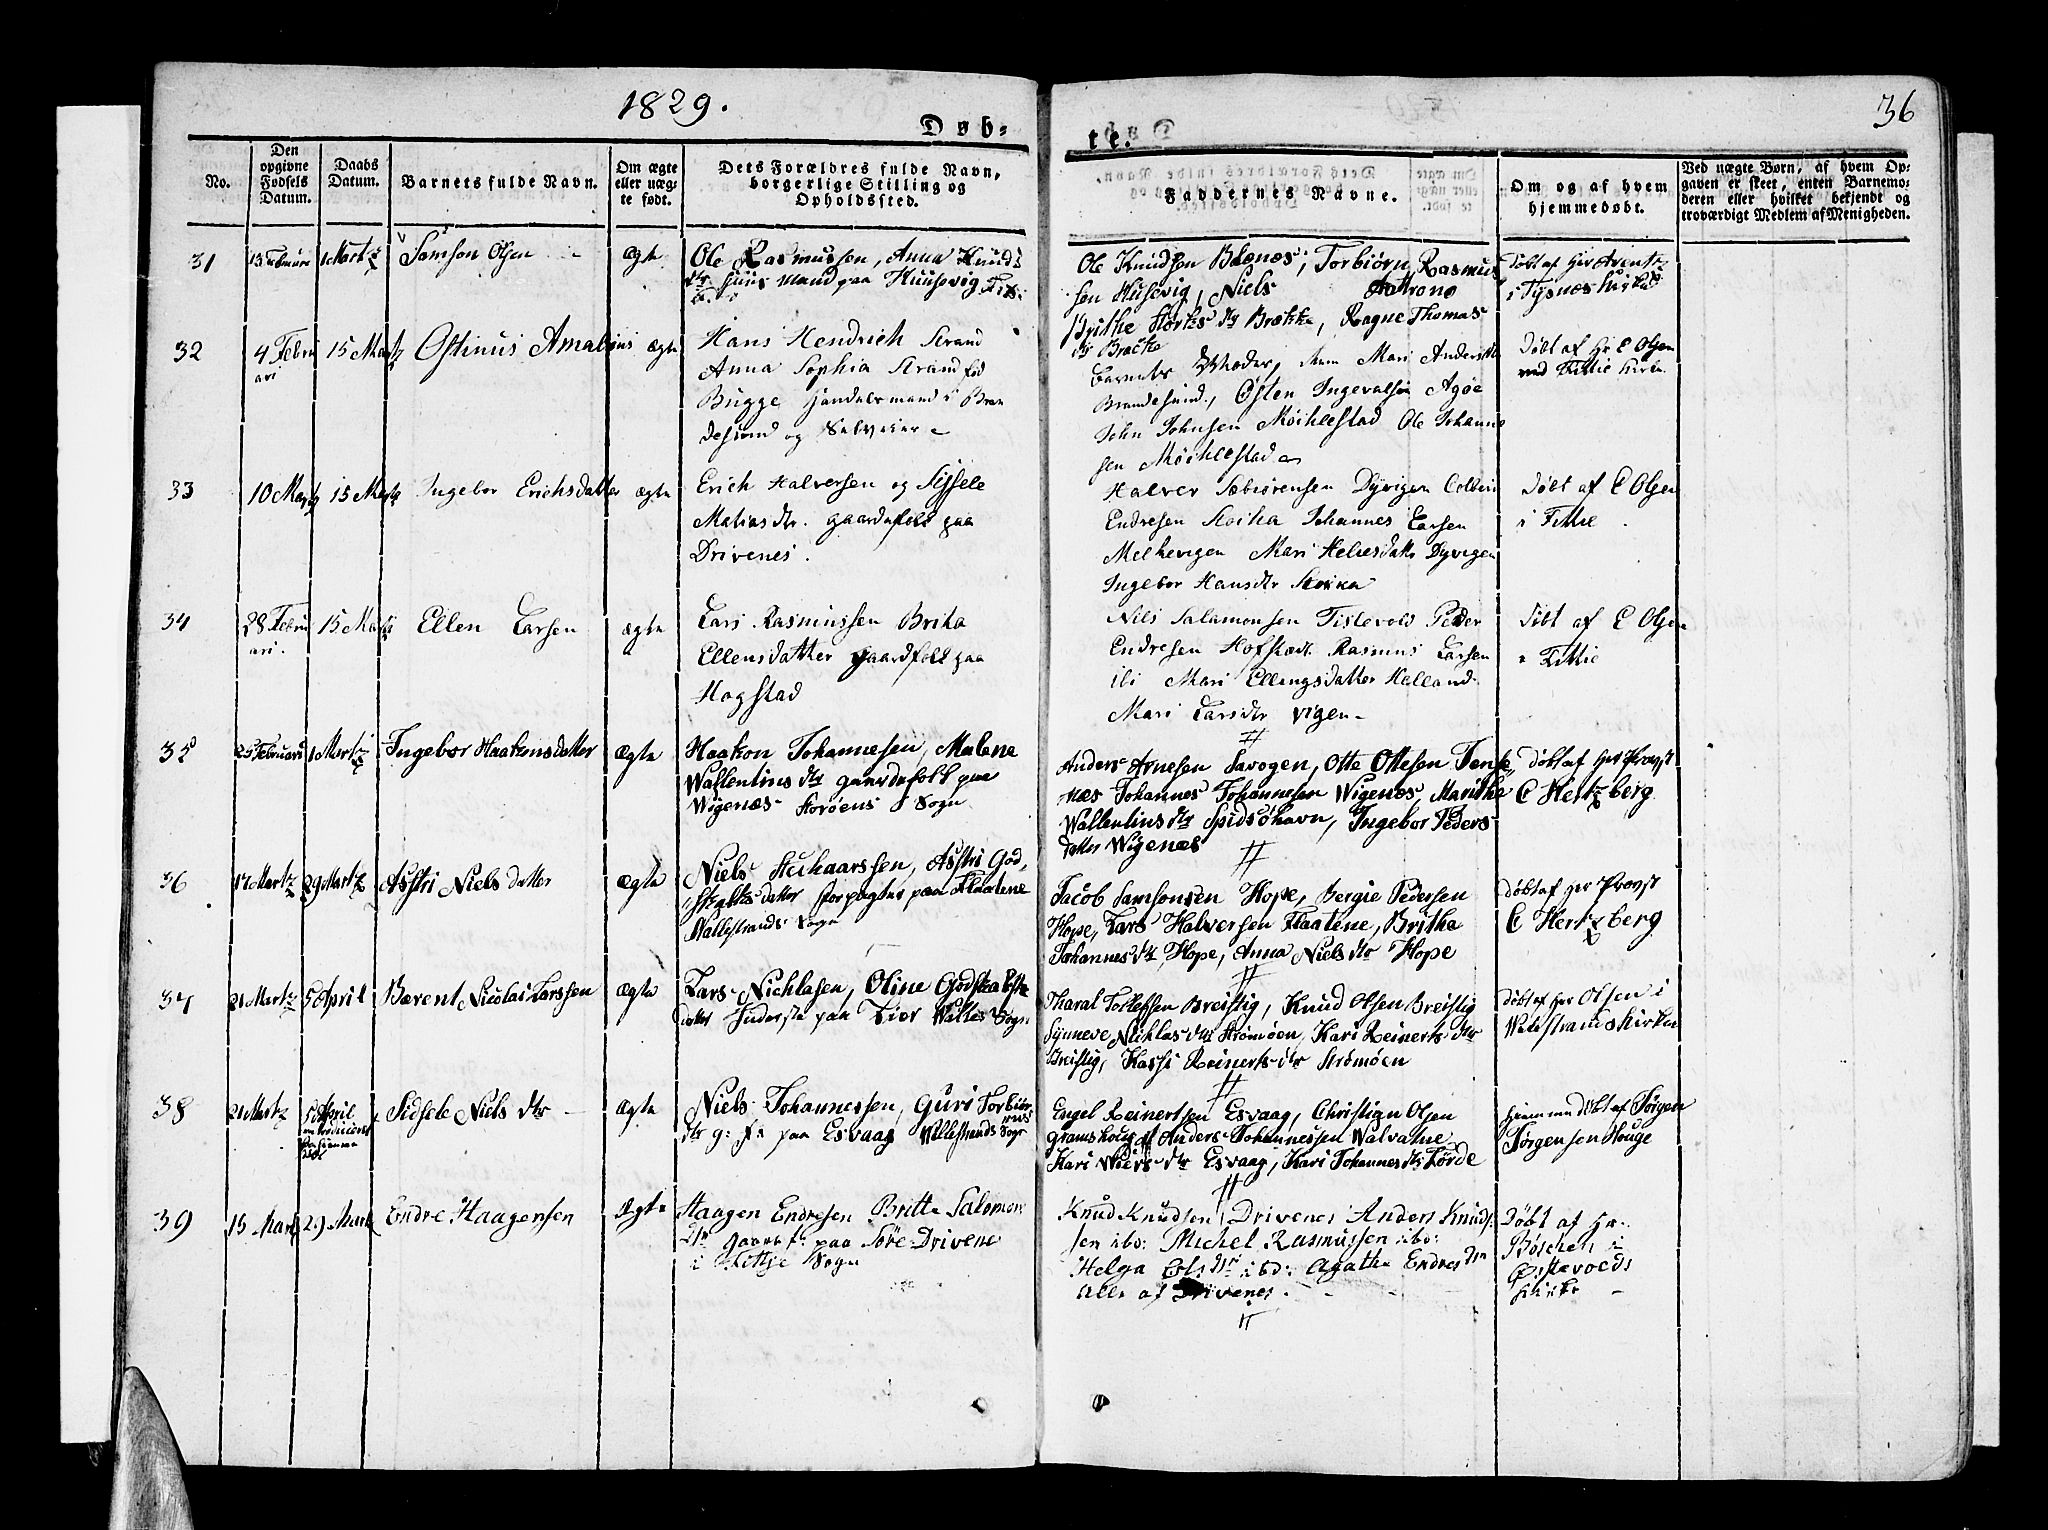 1829.
36
Døb-
te.
No.
Den opgivne Fødsels Datum.
Daabs Datum.
Barnets fulde Navn.
Om ægte eller uægte født.
Dets Forældres fulde Navn, borgerlige Stilling og Opholdssted.
Faddernes Navne.
Om og af hvem hjemmedøbt.
Ved uægte Børn, af hvem Opgaven er skeet, enten Barnemoderen eller hvilket bekjendt og troværdigt Medlem af Menigheden.
31
13 Februari
1 Martz
Samson Olsen
Ægte
Ole Rasmussen, Anna Knuds
dtr. Huusmand paa Huusevig
Ole Knudsen BLænæs, Torbiørn Rasmus
sen Husevig, Niels
Brithe dtr Brekke, Ragne Thomas
dtr Brække
Døbt af Her Arentz
i Tysnes Kirke
32
4 Febru
ari
15 Martz
Ostinus Amalius
ægte
Hans Hendrich Strand
Anna Sophia Strand fød
Bugge handelsmand i Bran
desund og Selveier
Barnets Moder, Mari Andersdtr
Brandesund, Østen Ingevalsøn Agøe
John Johnsen Møihlestad Ole Johanne
sen Møihlestad
Døbt af Hr E Olsen
ved Fittie Kirke
33
10 Martz
15 Martz
Ingebor Erichsdatter
ægte
Erich Halversen og Sissele
Matiasdtr. gaardsfolk paa
Drivenes.
Halver Sæbiørensen Dyvigen Colbein
Endresen Stoika Johannes Larsen
Melkevigen Mari Helliesdatter Dyvigen
Ingebor Hansdtr Stoika
Døbt af E Olsen
i Fittie
34
28 Febru
ari.
15 Martz
Ellen Larsen
ægte
Lars Rasmussen Brita
Ellensdatter gaardfolk paa
Hogstad
Nils Salamonsen Tislevold Peder
Endresen Hofstad Rasmus Larsen
ibi Mari Ellingsdatter Helland
Mari Larsdtr Vigen
Døbt af E Olsen
i Fittie
35
25 Februari
1 Martz
Ingebor Haakensdatter
Ægte
Haakon Johannesen, Malene
Wallentins dtr gaardsfolk paa
Wigenæs Storøens Sogn
Anders Arnesen Savogen, Otte Ottesen Tense
næs Johannes Johannesen Wigenæs, Marithe
Wallentins dtr Spidsøhavn, Ingebor Peders
datter Wigenæs
døbt af Her Provst
C Hertzberg
36
17 Martz
29 Martz
Astri Niels datter
Ægte
Niels Steihaarssen, Astri God,
skalks datter forpagter paa Flaatene
Wallestrands Sogn
Jacob Samsonsen Hope, Bergie Pedersen
Hope, Lars Halversen Flaatene, Brithe
Johannes dtr Hope, Anna Niels dtr Hope
døbt af Her Provst
C Hertzberg
37
21 Martz
5 April
Bærent Nicolai Larssen
Ægte
Lars Nichlasen, Oline Godskalks
datter Inderste paa Tiør Walles Sogn
Tharal Tollefsen Breistig, Knud Olsen Breistig
Synneve Niklas dtr Strømøen, Kari Reinerts dtr
Breistig, Kassi Reinerts dtr Strømøen
døbt af Her Olsen i
Walestrands Kirke
38
21 Martz
5 April
Sidsele Niels dtr
Ægte
Niels Johannessen, Guri Torbiør
dtr g: f: paa Esvaag Wallestrands Sogn
Engel Reinertsen Esvaag, Christian Olsen
Gramshoug, Anders Johannessen Walvatne
Kari Niels dtr Esvaag, Kari Johannes dtr Førde
Hiemmedøbt af Jørgen
Jørgensen Houge
39
15 Marts
29 Marts
Endre Haagensen
Ægte
Haagen Endresen Britte Salomon
Dtr Gaardf: paa Søre Drivene
i Fittje Sogn
Knud Knudsen, Drivenes Anders Knud
sen ibo: Michel Rasmussen ibo:
Helga dtr ibd: Agathe Endres dtr
Alle af Drivenes.
Døbt af Hr.
i
Øistevolds
Kirke